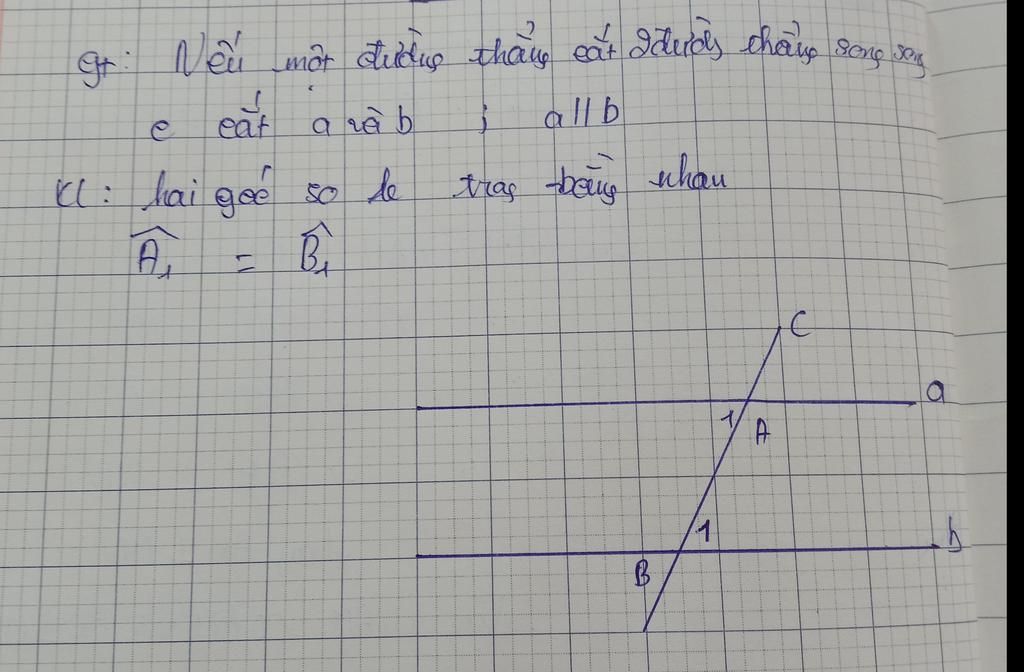 gt: Nếu một đường thẳng cắt 2 đường thẳng song song
c cắt a và b ; a//b
Kl: hai góc so le trong bằng nhau
Â₁ = B̂₁
C
a
1 A
1 b
B